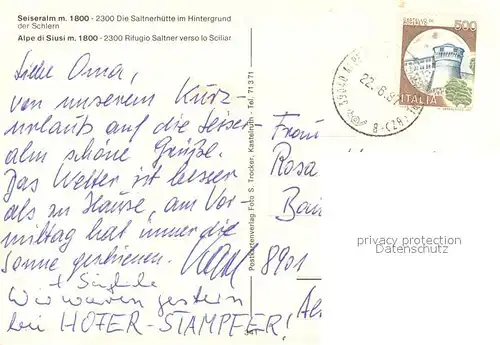 Seiseralm m. 1800 - 2300 Die Saltnerhütte im Hintergrund
der Schlern
Alpe di Siusi m. 1800 - 2300 Rifugio Saltner verso lo Sciliar
Liebe Oma,
von unserem Kurz-
urlaub auf die Seiser-
alm schöne Grüße.
Das Wetter ist besser
als zu Hause, am Vor-
mittag hat immer die
Sonne geschienen.
+
Wir waren gestern
bei HOFER-STAMPFER!
Postkartenverlag Foto S. Trocker, Kastelruth - Tel. 71371
CASTELLO DI
ROVERETO
500
ITALIA
39040
22.6.
Frau
Rosa
8901
privacy protection
www.oldthing.de